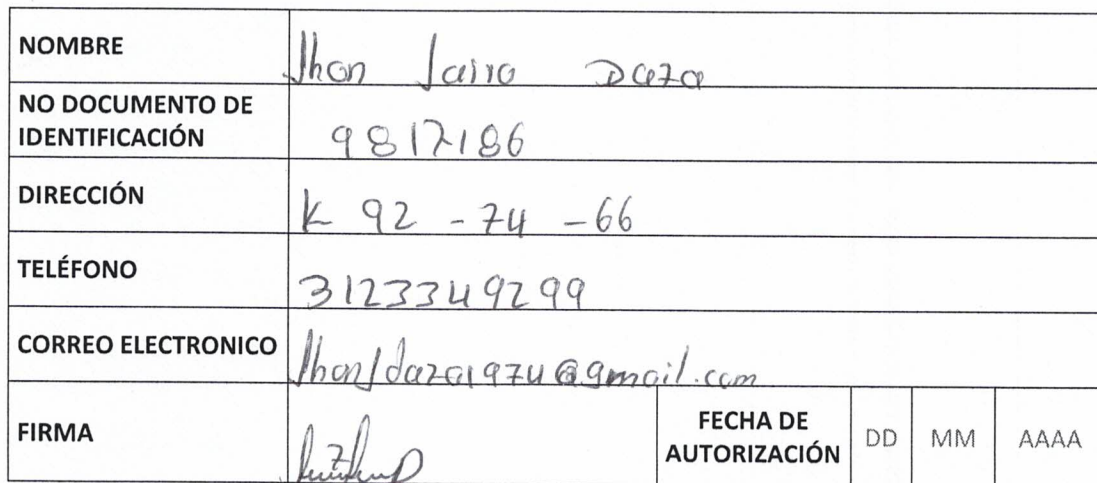 NOMBRE Jhon Jairo Daza
NO DOCUMENTO DE
IDENTIFICACIÓN 9817186
DIRECCIÓN K 92 - 74 - 66
TELÉFONO 3123349299
CORREO ELECTRONICO JhonJdaza1974@gmail.com
FIRMA
FECHA DE
AUTORIZACIÓN DD MM AAAA